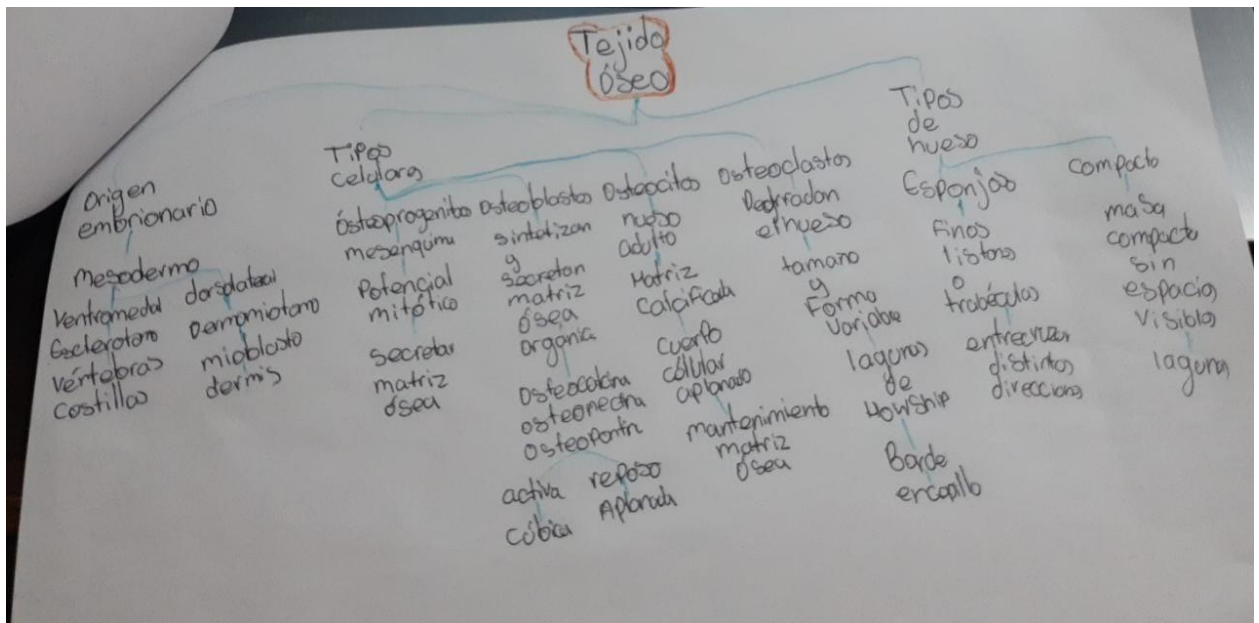 Tejido
óseo
Origen
embrionario
mesodermo
Ventromedial
Esclerotomo
vértebras
costillas
dorsolateral
Dermomiotomo
mioblasto
dermis
Tipos
celulares
Osteoprogenitos
mesenquima
Potencial
mitótico
secretar
matriz
ósea
Osteoblastos
sintetizan
y
secretan
matriz
ósea
organica
Osteocalcina
osteonectina
Osteopontin
activa
Cúbica
reposo
Aplanada
Osteocitos
hueso
adulto
Matriz
Calcificada
cuerpo
célular
aplanado
mantenimiento
matriz
ósea
Osteoclastos
Degradan
el hueso
tamaño
y
Forma
Variable
lagunas
de
Howship
Borde
encepillo
Tipos
de
hueso
Esponjoso
Finos
listones
o
trabéculas
entrecruzan
distintas
direcciones
compacto
masa
compacta
sin
espacios
visibles
laguna